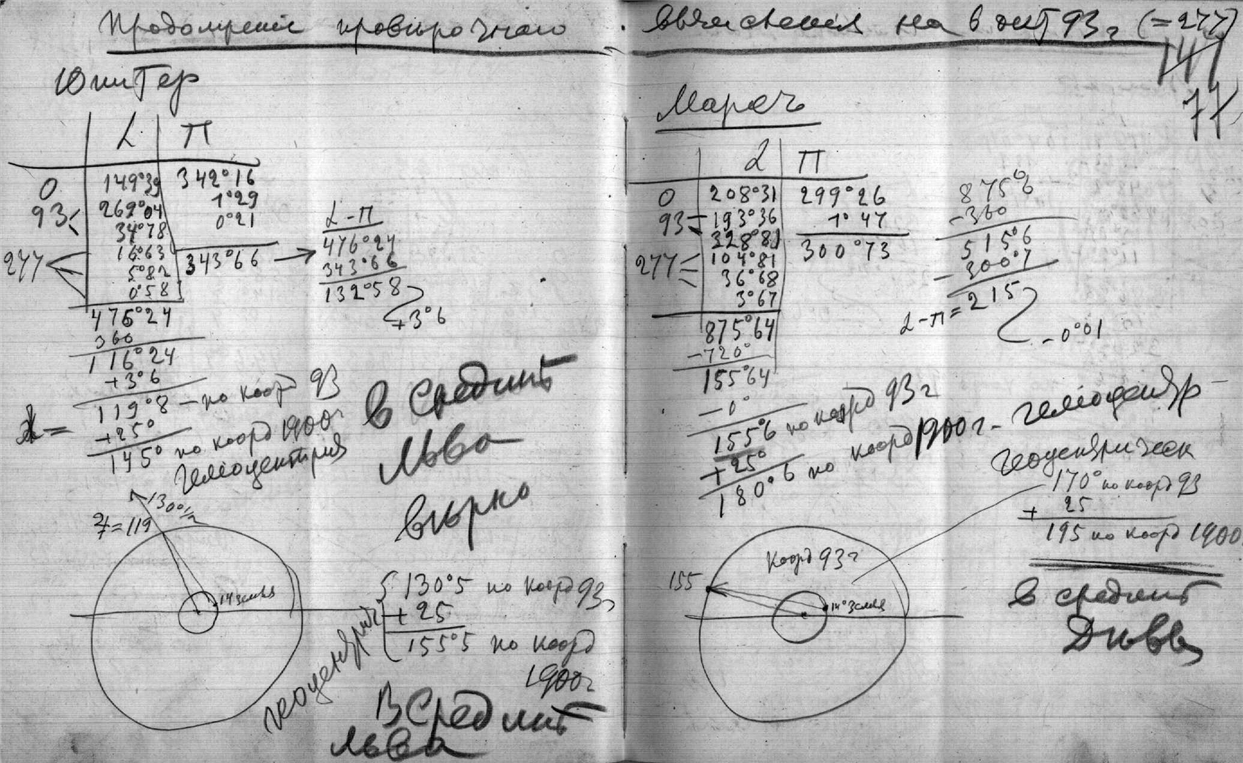 Продолжение провирочнаго вычисления на 6 окт 93 г (=277)
147
77
Юпитер
L П
0 149°39 342°16
93 269°04 1°29
34°78 0°21
277 16°63 343°66
5°82
0°58
476°24
360
116°24
+3°6
119°8 – по коорд 93
+25°
145° по коорд 1900г
гелиоцентрич
L-П
476°24
343°66
132°58
+3°6
в средине
Льва
верно
130°½
♃=119
14° земля
геоцентрич
130°5 по коорд 93
+25
155°5 по коорд
1900г
В Средине
Льва
Марсъ
L П
0 208°31 299°26
93 193°36 1°47
328°81 300°73
277 104°81
36°68
3°67
875°64
-720°
155°64
-0°
155°6 по коорд 93 г
+25°
180°6 по коорд 1900г - гелиоцентр
875°6
-360
515°6
-300°7
L-П = 215
-0°01
геоцентрическ
170° по коорд 93
+ 25
195 по коорд 1900
в средине
Девы
155
Коорд 93 г
14° земля